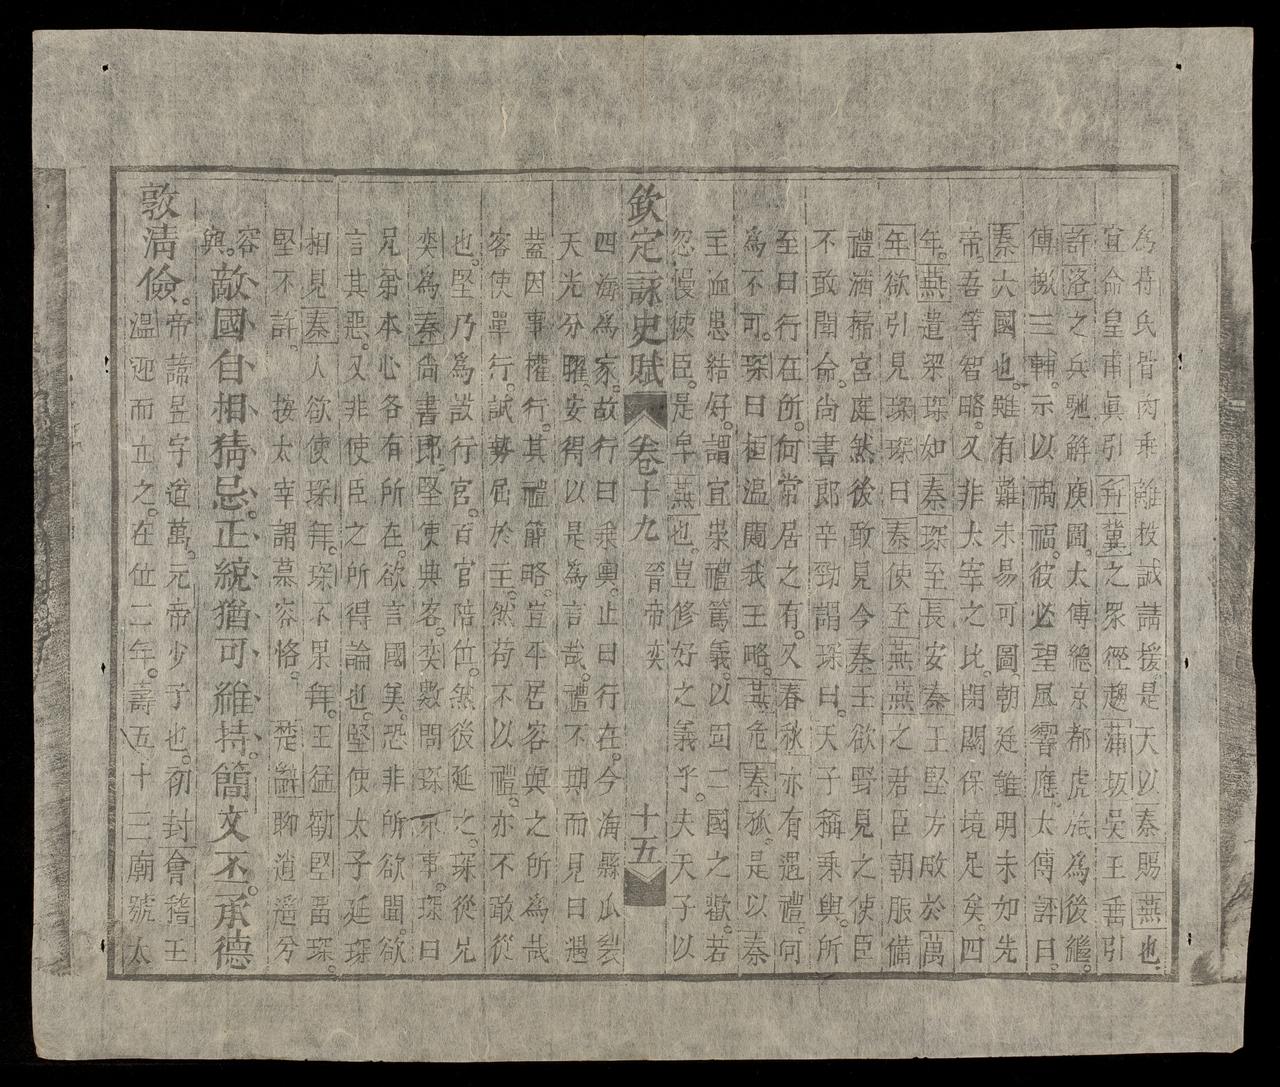 為苻氏骨肉乖離投誠請援是天以秦賜燕也
宜命皇甫眞引幷冀之眾徑趨蒲坂吳王垂引
許洛之兵馳解庾圍太傅總京都虎旅為後繼
傳檄三輔示以禍福彼必望風響應太傅評曰
秦六國也雖有難未易可圖朝廷雖明未如先
帝吾等智略又非太宰之比閉關保境足矣四
年燕遣梁琛如秦琛至長安秦王堅方畋於萬
年欲引見琛琛曰秦使至燕燕之君臣朝服備
禮洒掃宮庭然後敢見今秦王欲野見之使臣
不敢聞命尚書郎辛勁謂琛曰天子稱乘輿所
至曰行在所何常居之有又春秋亦有遇禮何
為不可琛曰桓溫闚我王略燕危秦孤是以秦
主血患結好謂宜崇禮篤義以固二國之歡若
忽慢使臣是卑燕也豈修好之義乎夫天子以
欽定詠史賦 卷十九 晉帝奕 十五
四海為家故行曰乘輿止曰行在今海縣瓜裂
天光分曜安得以是為言哉禮不期而見曰遇
蓋因事權行其禮簡略豈平居容與之所為哉
客使單行誠勢屈於主然苟不以禮亦不敢從
也堅乃為設行宮百官陪位然後延之琛從兄
奕為秦尚書郎堅使典客奕數問琛東事琛曰
兄弟本心各有所在欲言國美恐非所欲聞欲
言其惡又非使臣之所得論也堅使太子延琛
相見秦人欲使琛拜琛不果拜王猛勸堅畱琛
堅不許 按太宰謂慕容恪 楚辭聊逍遥兮
容與 敵國自相猜忌正統猶可維持簡文丕承德
敦淸儉 帝諱昱字道萬元帝少子也初封會稽王
溫迎而立之在位二年壽五十三廟號太